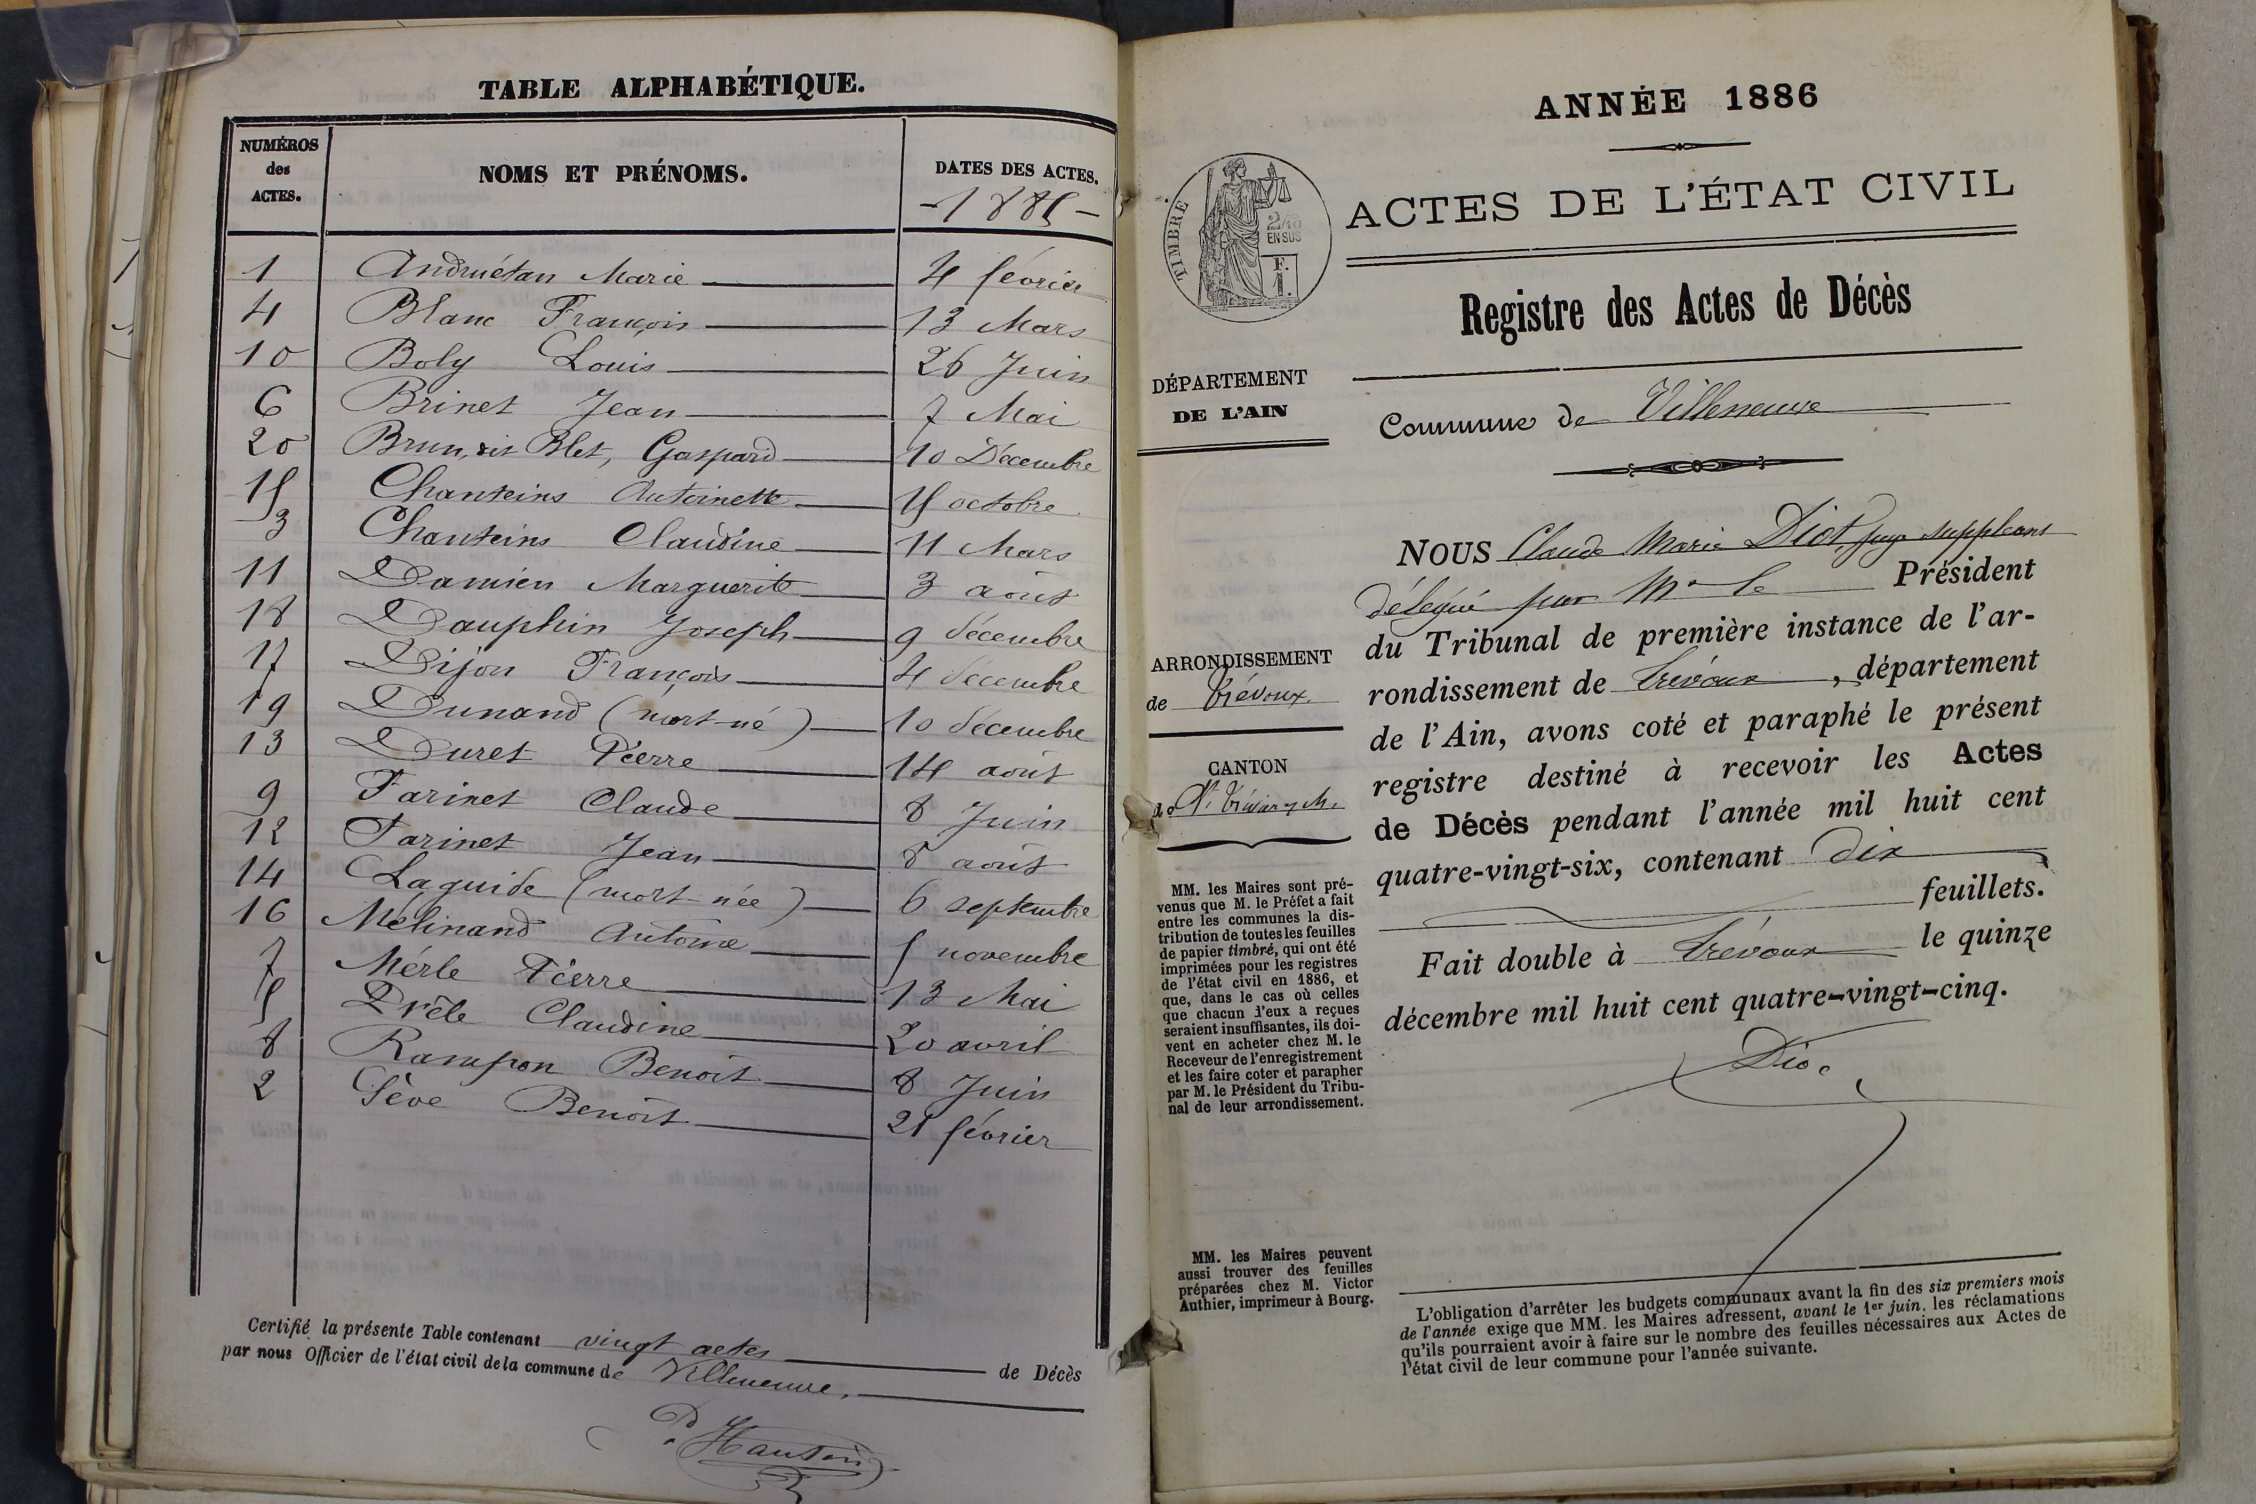 TABLE ALPHABÉTIQUE.
NUMÉROS des ACTES. NOMS ET PRÉNOMS. DATES DES ACTES.
-1885-
1 Andruétan Marie 4 février
4 Blanc François 13 Mars
10 Boly Louis 26 Juin
6 Brinet Jean 7 Mai
20 Brun, dit Blet, Gaspard 10 Décembre
15 Chanteins Antoinette 15 octobre
3 Chanteins Claudine 11 Mars
11 Damien Marguerite 3 août
18 Dauphin Joseph 9 décembre
17 Dijon François 4 décembre
19 Dunand (mort-né) 10 décembre
13 Duret Pierre 14 août
9 Farinet Claude 8 Juin
12 Farinet Jean 8 août
14 Laguide (mort-née) 6 septembre
16 Mélinand Antoine 5 novembre
7 Mérle Pierre 13 Mai
5 Prêle Claudine 20 avril
8 Rampon Benoît 8 Juin
2 Sève Benoît 21 février
Certifié la présente Table contenant vingt actes de Décès
par nous Officier de l'état civil de la commune de Villeneuve.
ANNÉE 1886
TIMBRE
2/10
EN SUS
F.
1.
ACTES DE L'ÉTAT CIVIL
Registre des Actes de Décès
DÉPARTEMENT
DE L'AIN
Commune de Villeneuve
ARRONDISSEMENT
de Trévoux.
CANTON
de St Trivier s M.
NOUS Claude Marie Diot Juge suppléant
délégué par Mr le Président
du Tribunal de première instance de l'ar-
rondissement de Trévoux, département
de l'Ain, avons coté et paraphé le présent
registre destiné à recevoir les Actes
de Décès pendant l'année mil huit cent
quatre-vingt-six, contenant dix
feuillets.
Fait double à Trévoux le quinze
décembre mil huit cent quatre-vingt-cinq.
Diot
MM. les Maires sont pré-
venus que M. le Préfet a fait
entre les communes la dis-
tribution de toutes les feuilles
de papier timbré, qui ont été
imprimées pour les registres
de l'état civil en 1886, et
que, dans le cas où celles
que chacun d'eux a reçues
seraient insuffisantes, ils doi-
vent en acheter chez M. le
Receveur de l'enregistrement
et les faire coter et parapher
par M. le Président du Tribu-
nal de leur arrondissement.
MM. les Maires peuvent
aussi trouver des feuilles
préparées chez M. Victor
Authier, imprimeur à Bourg.
L'obligation d'arrêter les budgets communaux avant la fin des six premiers mois
de l'année exige que MM. les Maires adressent, avant le 1er juin, les réclamations
qu'ils pourraient avoir à faire sur le nombre des feuilles nécessaires aux Actes de
l'état civil de leur commune pour l'année suivante.